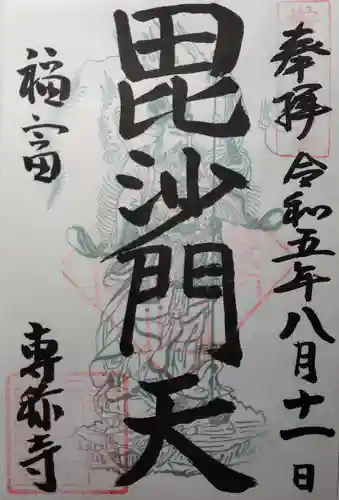 奉拝 令和五年八月十一日
毘沙門天
福富
専称寺